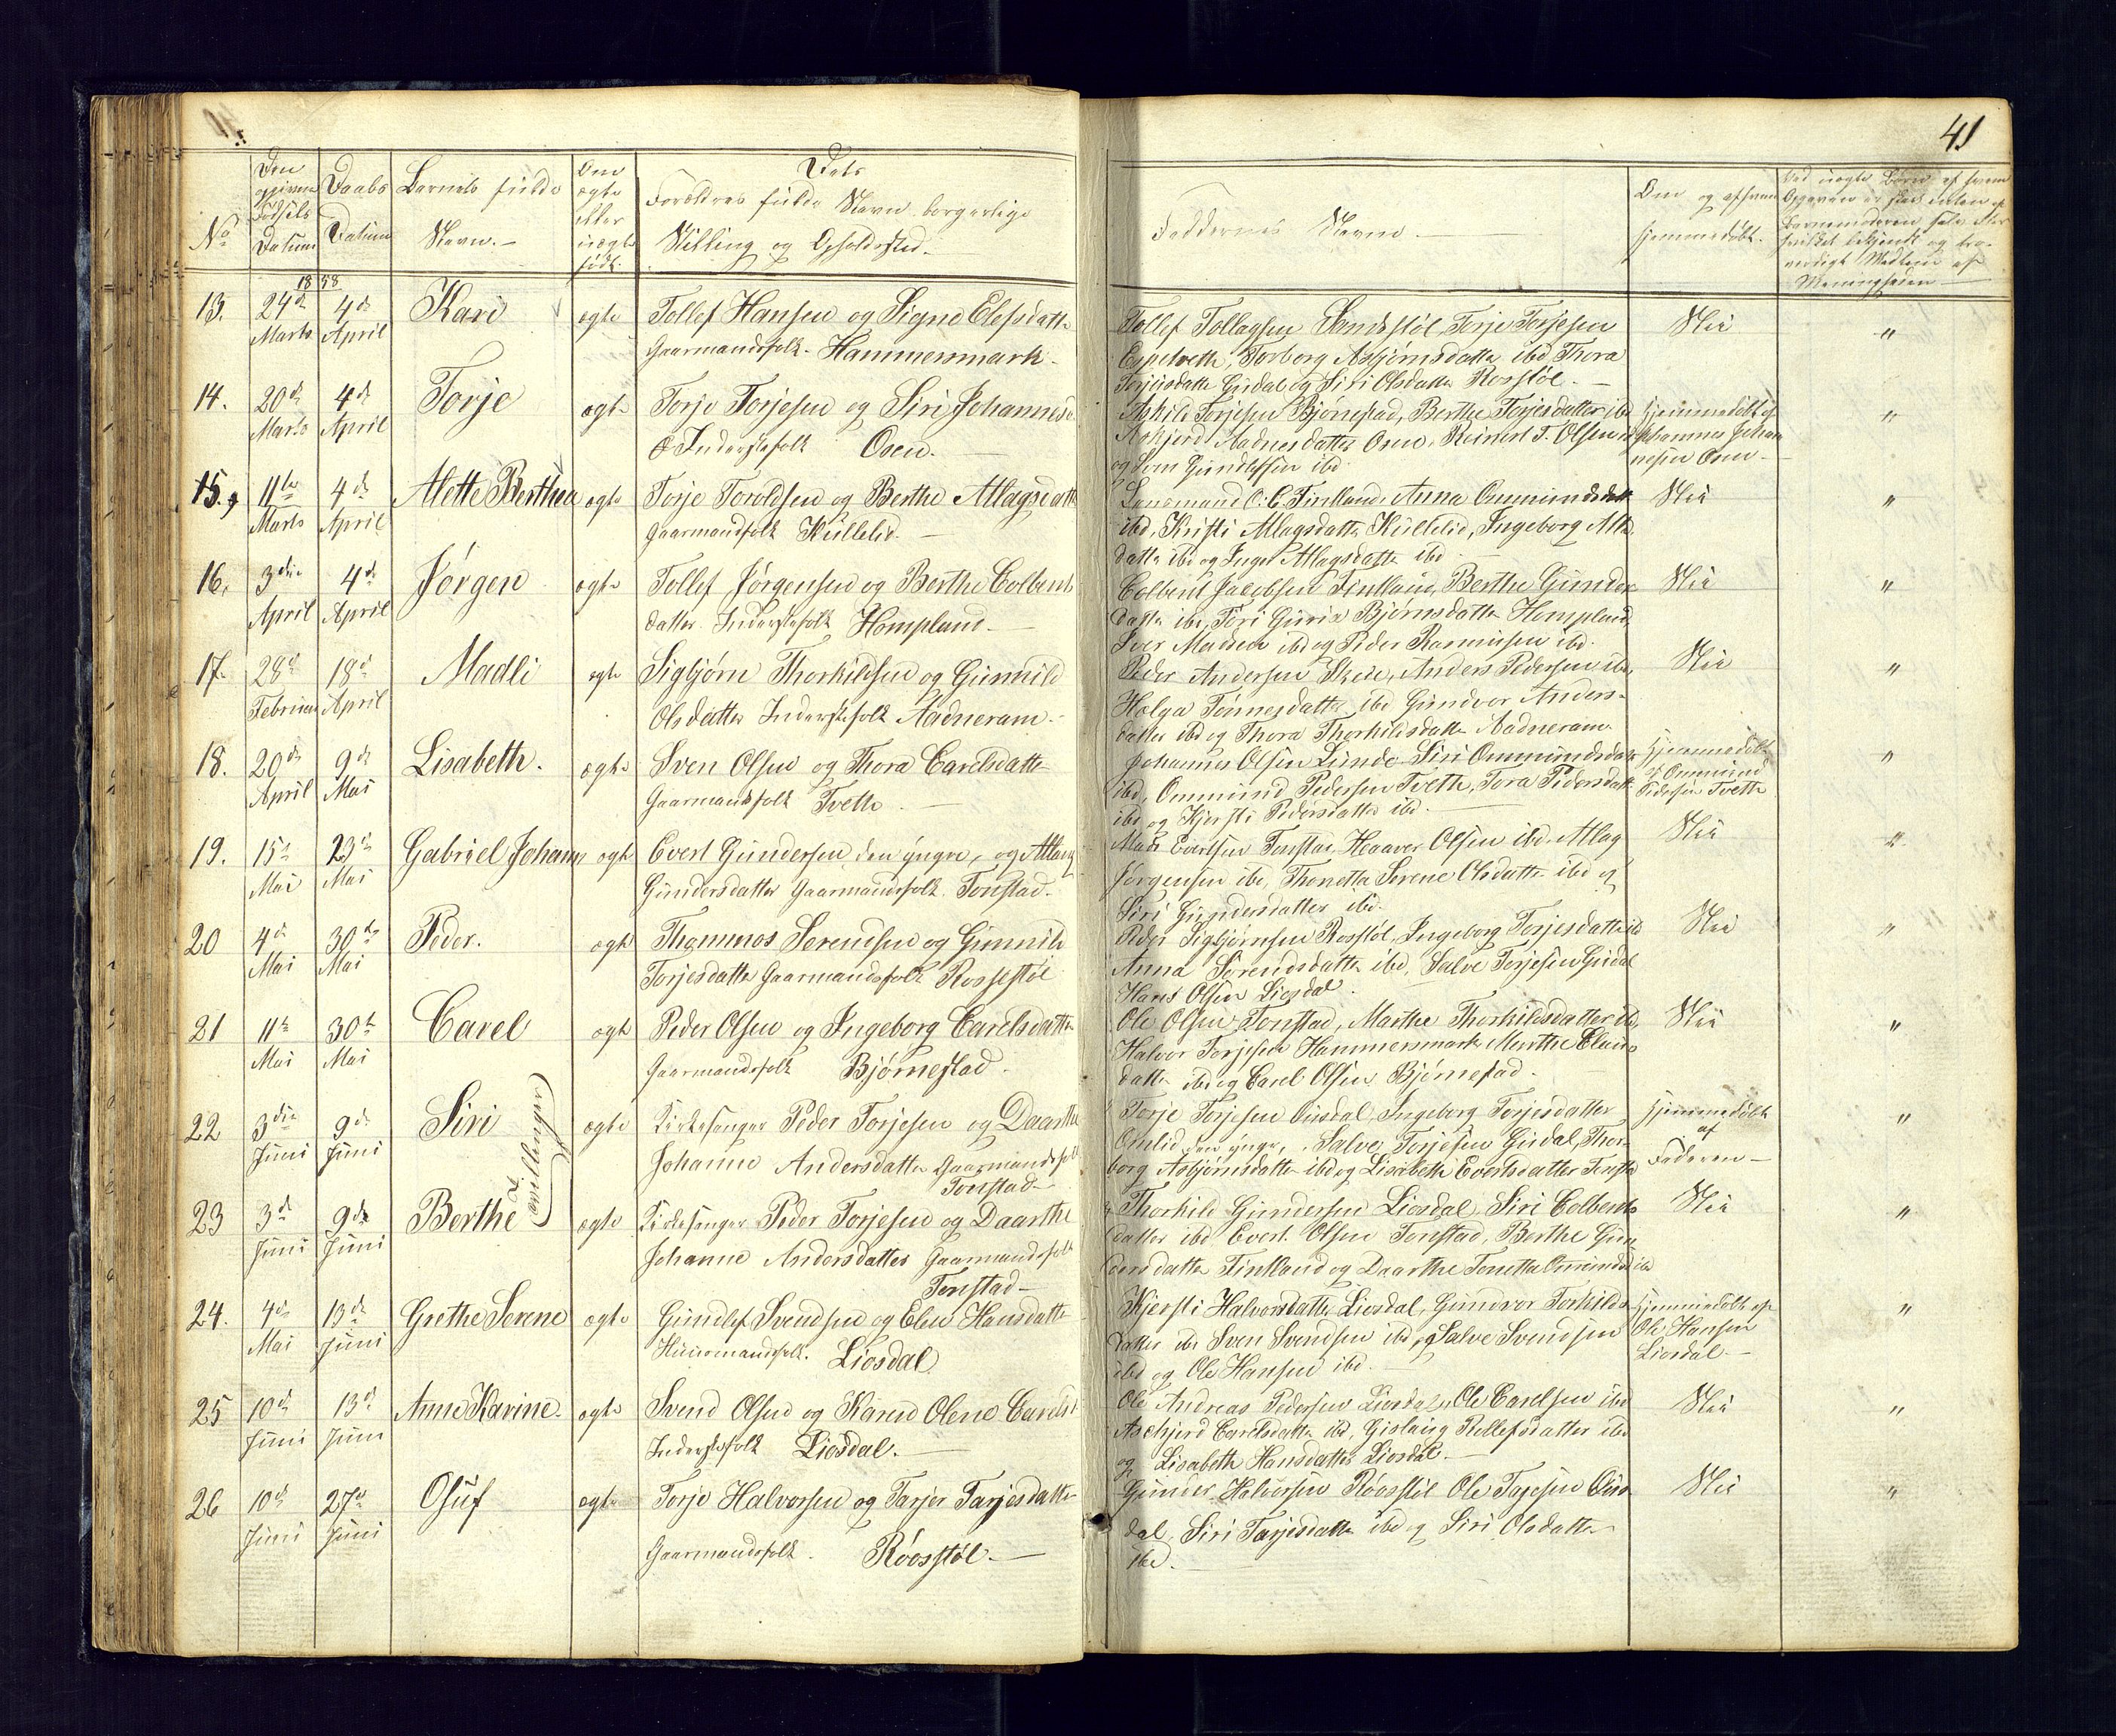 41
Den opgivne Fødsels Datum
Daabs Datum
Barnets fulde Navn.
Om ægte eller uægte født.
Dets Forældres fulde Navn borgerlige Stilling og Opholdssted.
No
Faddernes Navne.
Om og af hvem hjemmedøbt.
1858
13. 24de Marts 4de April Kari ægte Tollef Hansen og Signe
Gaarmandsfolk. Hammersmark.
Tollef Tollagsen Torje Torjesen
Torborg Asbjørnsdatter ibd Thora
Torjesdatter Girdal og Siri Olsdatter Rosstøl.
Nei "
14. 20de Marts 4de April Torje ægte Torje Torjesen og Siri Johannesd
Inderstefolk Osen.
Torjesen Bjørnestad, Berthe Torjesdatter ibd
Aadnesdatter Osen, Reinert T. Olsen
og Gundlefsen ibd.
hjemmedøbt af Johannes Johannesen Osen "
15. 11te Marts 4de April Alette Berthea ægte Torje Toroldsen og Berthe Atlagsdatter
Gaarmandsfolk Küllelid.
Lensmand O. C. Fintland, Anna Ommundsdatter
ibd, Kristi Atlagsdatter Küllelid, Ingeborg
datter ibd og Inger Atlagsdatter ibd
Nei "
16. 3die April 4de April Jørgen ægte Tollef Jørgensen og Berthe Colbents
datter. Inderstefolk Hompland.
Colbent Jacobsen Fintland, Berthe Gunders
datter ibd, Tori Bjørnsdatter Hompland,
Iver Madsen ibd og Peder Rasmussen ibd.
Nei "
17. 28de Februar 18de April Madli ægte Sigbjørn Thorkildsen og Gunnild
Olsdatter Inderstefolk Aadneram.
Peder Andersen Skeie, Anders Pedersen ibd,
Helga Tønnesdatter ibd Gundvor Anders-
datter ibd og Thora Thorkildsdatter Aadneram.
Nei "
18. 20de April 9de Mai Lisabeth. ægte Sven Olsen og Thora Carelsdatter
Gaarmandsfolk Tveth
Johannes Olsen Linde Siri Ommundsdatter
ibd, Ommund Pedersen Tveth, Tora Pedersdatter
ibd og Kjersti Pedersdatter ibd.
hjemmedøbt af Ommund Pedersen Tveth "
19. 15de Mai 23de Mai Gabriel Johann ægte Evert Gundersen den yngre, og
Gundersdatter Gaarmandsfolk Tonstad.
Mads Evertsen Tonstad, Haaver Olsen ibd. Atlag
Jørgensen ibd, Thonetta Serene Olsdatter ibd og
Siri Gundersdatter ibd.
Nei "
20 4de Mai 30te Mai Peder. ægte Thommas Serendsen og Gunnild
Torjesdatter Gaarmandsfolk Rossestøl
Peder Sigbjørnsen Rosstøl, Ingeborg Torjesdatter ibd
Anna Sørensdatter ibd, Salve Torjesen Girdal
Hans Olsen Liosdal.
Nei "
21 11te Mai 30te Mai Carel ægte Peder Olsen og Ingeborg Carelsdatter
Gaarmandsfolk Bjørnestad.
Ole Olsen Tonstad, Marthe Thorkildsdatter ibd,
Halvor Torjesen Hammersmark Marthe
datter ibd og Carel Olsen Bjørnestad.
Nei "
22 3die Juni 9de Juni Siri ægte Kirkesanger Peder Torjesen og Daarthe
Johanne Andersdatter Gaarmandsfolk
Tonstad
Torje Torjesen Ousdal, Ingeborg Torjesdatter
Omlid den yngre, Salve Torjesen Girdal, Thor-
borg Asbjørnsdatter ibd og Lisabeth Evertsdatter Tonstad
hjemmedøbt af Faderen "
Tvillinger
23 3die Juni 9de Juni Berthe ægte Kirkesanger Peder Torjesen og Daarthe
Johanne Andersdatter Gaarmandsfolk
Tonstad
Thorkild Gundersen Liosdal, Siri Colbents
datter ibd Evert Olsen Tonstad, Berthe Gun
dersdatter Fintland og Daarthe Tonetta
Nei "
24. 4de Mai 13de Juni Grethe Serene ægte Gundlef Svendsen og Elen Hansdatter
Huusmandsfolk. Liosdal
Kjersti Halvorsdatter Liosdal, Gundvor Torkilds
datter ibd Sven Svendsen ibd, Salve Svendsen
ibd og Ole Hansen ibd.
hjemmedøbt af Ole Hansen Liosdal. "
25 10de Juni 13de Juni Anne Karine. ægte Svend Olsen og Karen Olene Carelsd
Inderstefolk Liosdal.
Ole Andreas Pedersen Liosdal, Ole Carelsen ibd
Aschjerd Carelsdatter ibd, Gislaug Rellefsdatter ibd
og Lisabeth Hansdatter Liosdal
Nei "
26 10de Juni 27de Juni Osuf ægte Torje Halvorsen og Tarjer Tarjesdatter
Gaarmandsfolk. Røosstøl.
Gunder Halvorsen Røosstøl Ole Tarjesen Ous
dal, Siri Tarjesdatter ibd og Siri Olsdatter
ibd.
Nei "